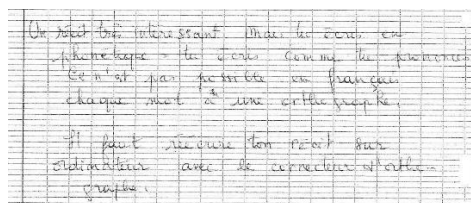 Un récit très intéressant. Mais tu écris en
phonétique = tu écris comme tu prononces
Ce n'est pas possible en français
chaque mot à une orthographe.
Il faut réécrire ton récit sur
ordinateur avec le correcteur d'ortho-
graphe.